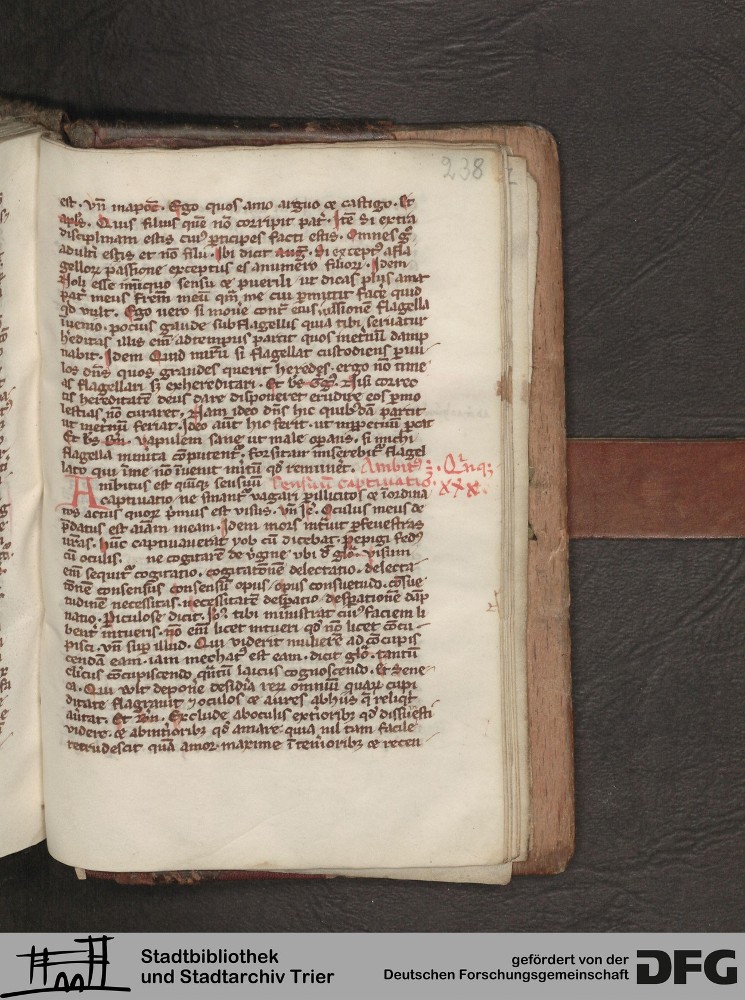 238
est. Vñ in apoc̄. Ego quos amo arguo ⁊ castigo. Et
apl̄s. Quis filius quē nō corripit pat̄. Itē Si extra
disciplinam estis cui⁹ p̄ticipes facti estis. Omnes g°
adult̄i estis et nō filii. Ibi dicit aug̅. Si except⁹ a fla
gellor̄ passione exceptus es a numero filior̄. Idem
Noli esse iniquo sensu ⁊ puerili ut dicas pl⁹ amat
pat̄ meus frēm meū qm̄ me cui p̄mittit facē quid
qd vult. Ego uero si moue cont̄ eius iussionē flagella
inuenio. pocius gaude sub flagellis quia tibi seruatur
h̄editas illis em̄ ad tempus parcit quos in et̄nū damp
nabit. Idem Quid mirū si flagellat custodiens
los dñs quos grandes querit heredes. ergo nō time
as flagellari s; exhereditari. Et bs̄ Nisi correc
tis hereditatē deus dare disponeret erudire eos p̄ mo
lestias nō curaret. Nam ideo dñs hic quib⁹dā parcit
ut in et̄nū feriat. Ideo aut̄ hic ferit ut in p̄petuū p̄cat
Et bs̄ vapulem sane ut male opans. si michi
flagella in mīta cōputent̄. forsitan miserebit̄ flagel
lato qui in me nō inuenit mītū qd remun̄et. Ambit⁹ Qnq;
Ambitus est quīq; sensuū Sensuum captiuatio. xxx.
captiuatio ne sinant̄ vagari p̄ illicitos ⁊ iordina
tos actus quor̄ p̄mus est visus. vñ Je. Oculus meus de
p̄datus est aīam meam. Idem mors int̄uit p̄ fenestras
uras. Hūc captiuauerat yob cū dicebat. Pepigi fed⁹
cū oculis. ne cogitarē de v̄gne vbi d' glo. visum
em̄ sequit̄ cogitatio. cogitationem delectatio. delecta
tionē consensus consensū opus opus consuetudo. cōsue
tudinem necessitas. necessitatē despatio despationē dāp
natio. Piculose dicit tibi ministrat cui⁹ faciem li
bent̄ intueris. nō em̄ licet intueri qd nō licet cōcu
pisci. vñ sup illud. Qui viderit mulierē ad cōcupis
cendā eam. iam mechat⁹ est eam. dicit glo. tantū
clīcus cōcupiscendo q̄ntū laicus cognoscendo. Et Sene
ca. Qui volt deponē desid'ia rer̄ omniū quar̄ cupi
ditate flagrauit ⁊ oculos ⁊ aures ab hiis q̄ reliqt
au̅tat. Et Exclude ab oculis ext̄iorib; qd disuesti
videre. ⁊ ab int̄iorib; qd amare. quia nil tam facile
recrudescit quā amor. maxime ī teniorib; ⁊ recen
Stadtbibliothek
und Stadtarchiv Trier
gefördert von der
Deutschen Forschungsgemeinschaft
DFG